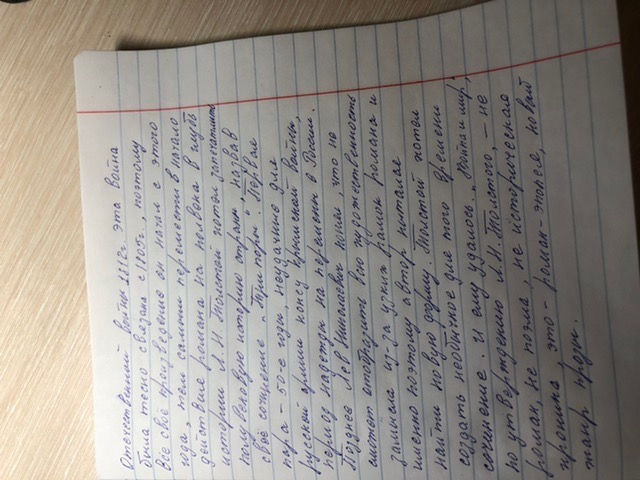 Отечественной войны 1812г. эта война
была тесно связана с 1805г., поэтому
всё своё произведение он начал с этого
года, тем самым переместив в начало
действия романа на полвека в глубь
истории. Л.Н.Толстой хотел запечатлить
полувековую историю страны, назвав
своё сочинение „Три поры". Первая
пора – 50-е годы, неудачные для
русской армии конец крымской войны,
период надежды на перемены в России.
Позднее Лев Николаевич понял, что не
сможет отобразить всю художественность
замысла из-за узких рамок романа и
именно поэтому автор пытался
найти новую форму. Толстой хотел
создать необычное для того времени
сочинение. И ему удалось. „Война и мир",
по утверждению Л.Н.Толстого, – не
роман, не поэма, не историческая
хроника, это – роман-эпопея, новый
жанр прозы.